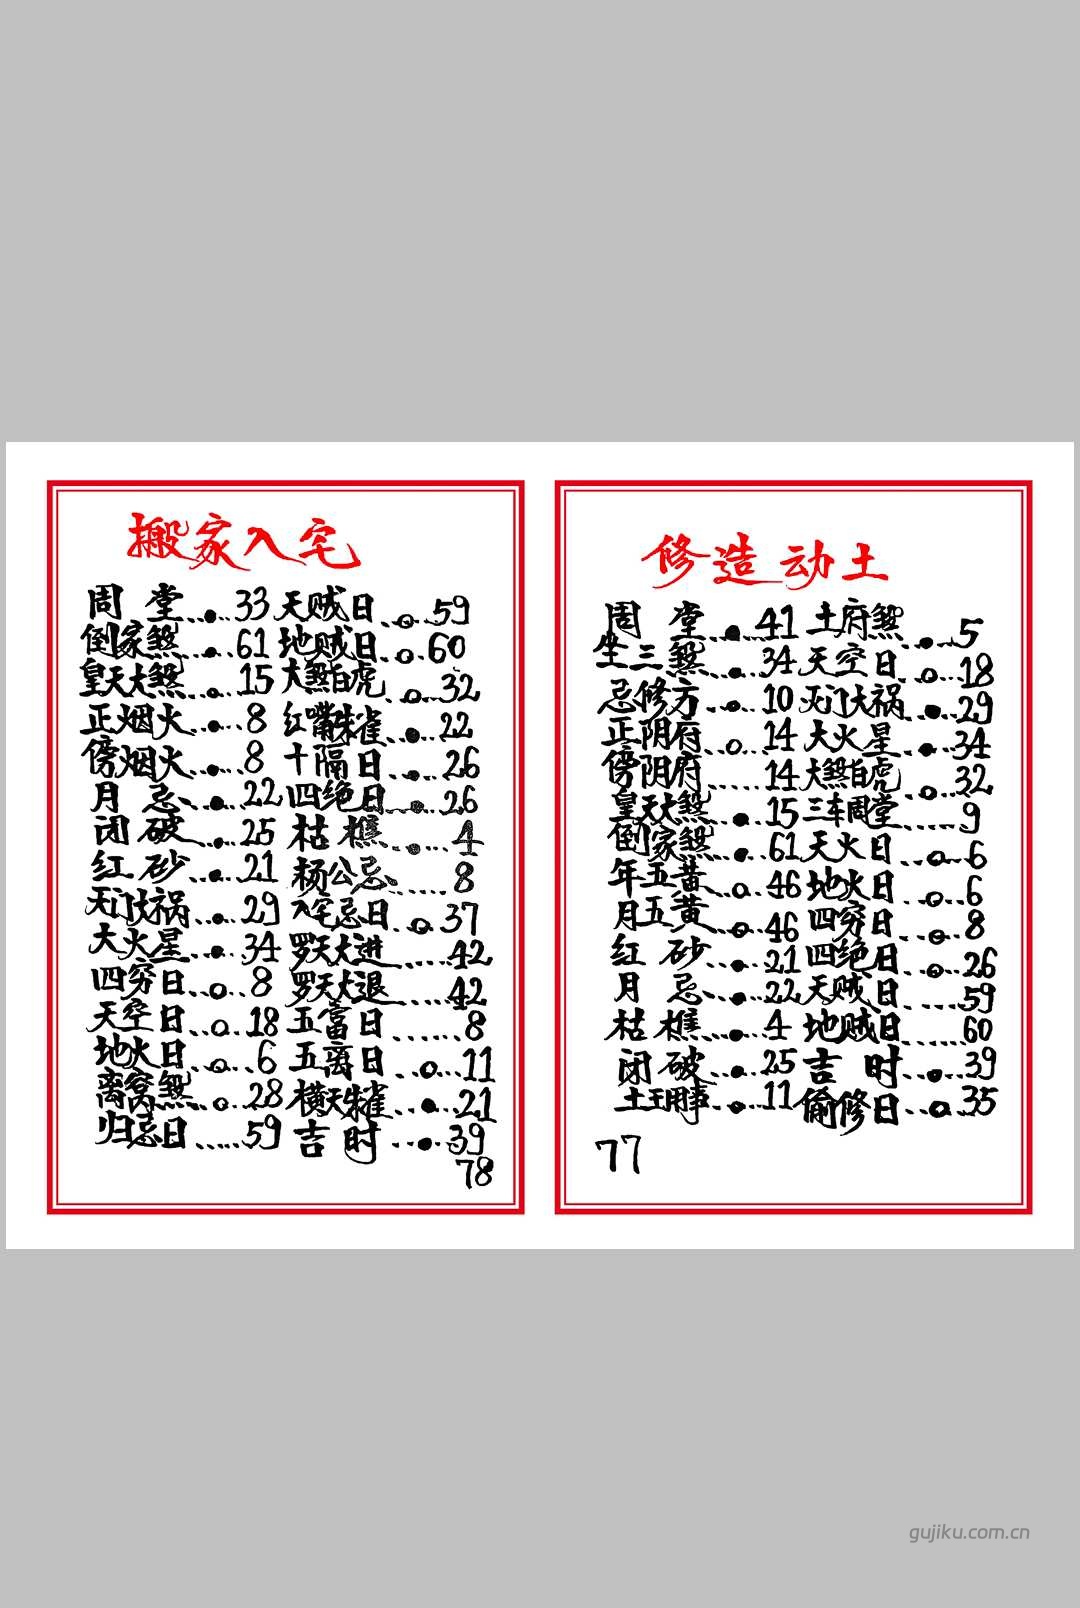 搬家入宅
周堂..●..33 天贼日..○..59
倒家煞..●..61 地贼日..○..60
皇天大煞..●..15 大煞白虎..○..32
正烟火..●..8 红嘴朱雀..●..22
傍烟火..●..8 十隔日..●..26
月忌..●..22 四绝日..●..26
闭破..●..25 枯樵..●..4
红砂..●..21 杨公忌......8
天门大祸..●..29 入宅忌日..○..37
大火星..●..34 罗天大进......42
四穷日..○..8 罗天大退......42
天空日..○..18 五富日......8
地火日..○..6 五离日..○..11
离窝煞..○..28 横天朱雀..●..21
归忌日......59 吉时..●..39
78
修造动土
周堂..●..41 土府煞..●..5
坐三煞..●..34 天空日..○..18
忌修方..●..10 灭门大祸..●..29
正阴府..○..14 大火星..●..34
傍阴府......14 大煞白虎..○..32
皇天大煞..●..15 三车周堂......9
倒家煞..●..61 天火日..○..6
年五黄..○..46 地火日..○..6
月五黄..○..46 四穷日..○..8
红砂..●..21 四绝日..○..26
月忌..●..22 天贼日......59
枯樵..●..4 地贼日......60
闭破..●..25 吉时..●..39
土王用事..●..11 偷修日..○..35
77
gujiku.com.cn